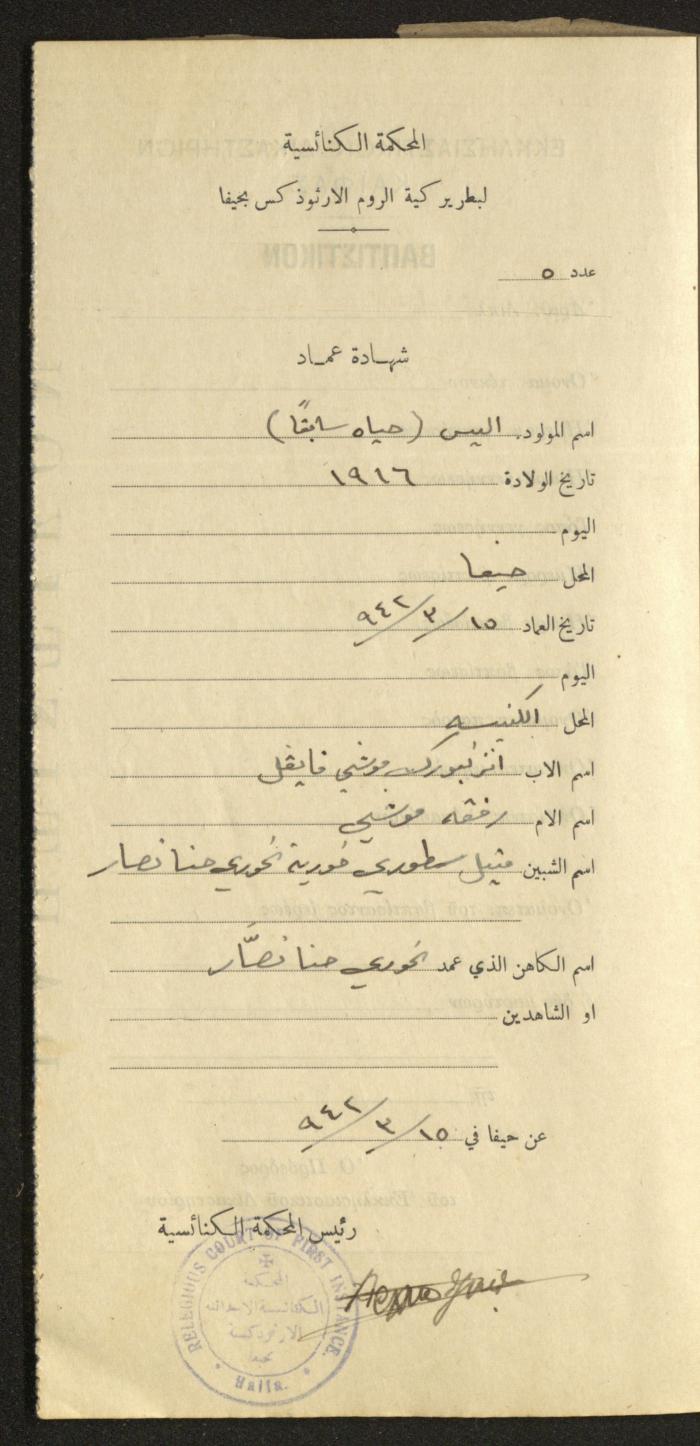 المحكمة الكنائسية
لبطريركية الروم الارثوذكس بحيفا
عدد ٥
شهادة عماد
اسم المولود. اليس (حياه سابقًا)
تاريخ الولادة ١٩١٦
اليوم
المحل حيفا
تاريخ العماد ١٥/٣/٩٤٢
اليوم
المحل الكنيسه
اسم الاب موشي فايقل
اسم الام رفقه موشي
اسم الشبين متيل سطوري خورية الخوري حنا نصار
اسم الكاهن الذي عمد الخوري حنا نصَّار
او الشاهدين
عن حيفا في ١٥/٣/٩٤٢
رئيس المحكمة الكنائسية
RELEGIOUS COURT OF FIRST INSTANCE.
المحكمة
الكنائسية الابتدائية
الارثوذكسية
بحيفا
Haifa.